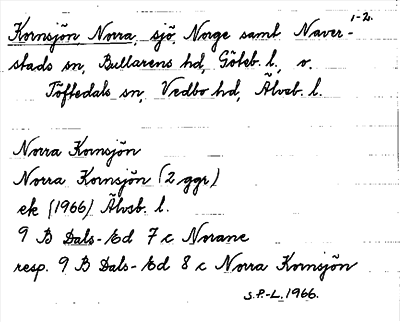 1-2.
Kornsjön, Norra, sjö, Norge samt Naver-
stads sn, Bullarens hd, Göteb. l., o.
Töftedals sn, Vedbo hd, Älvsb. l.
Norra Kornsjön
Norra Kornsjön (2 ggr)
ek (1966) Älvsb. l.
9 B Dals-Ed 7 c Norane
resp. 9 B Dals-Ed 8 c Norra Kornsjön
S.P.-L. 1966.